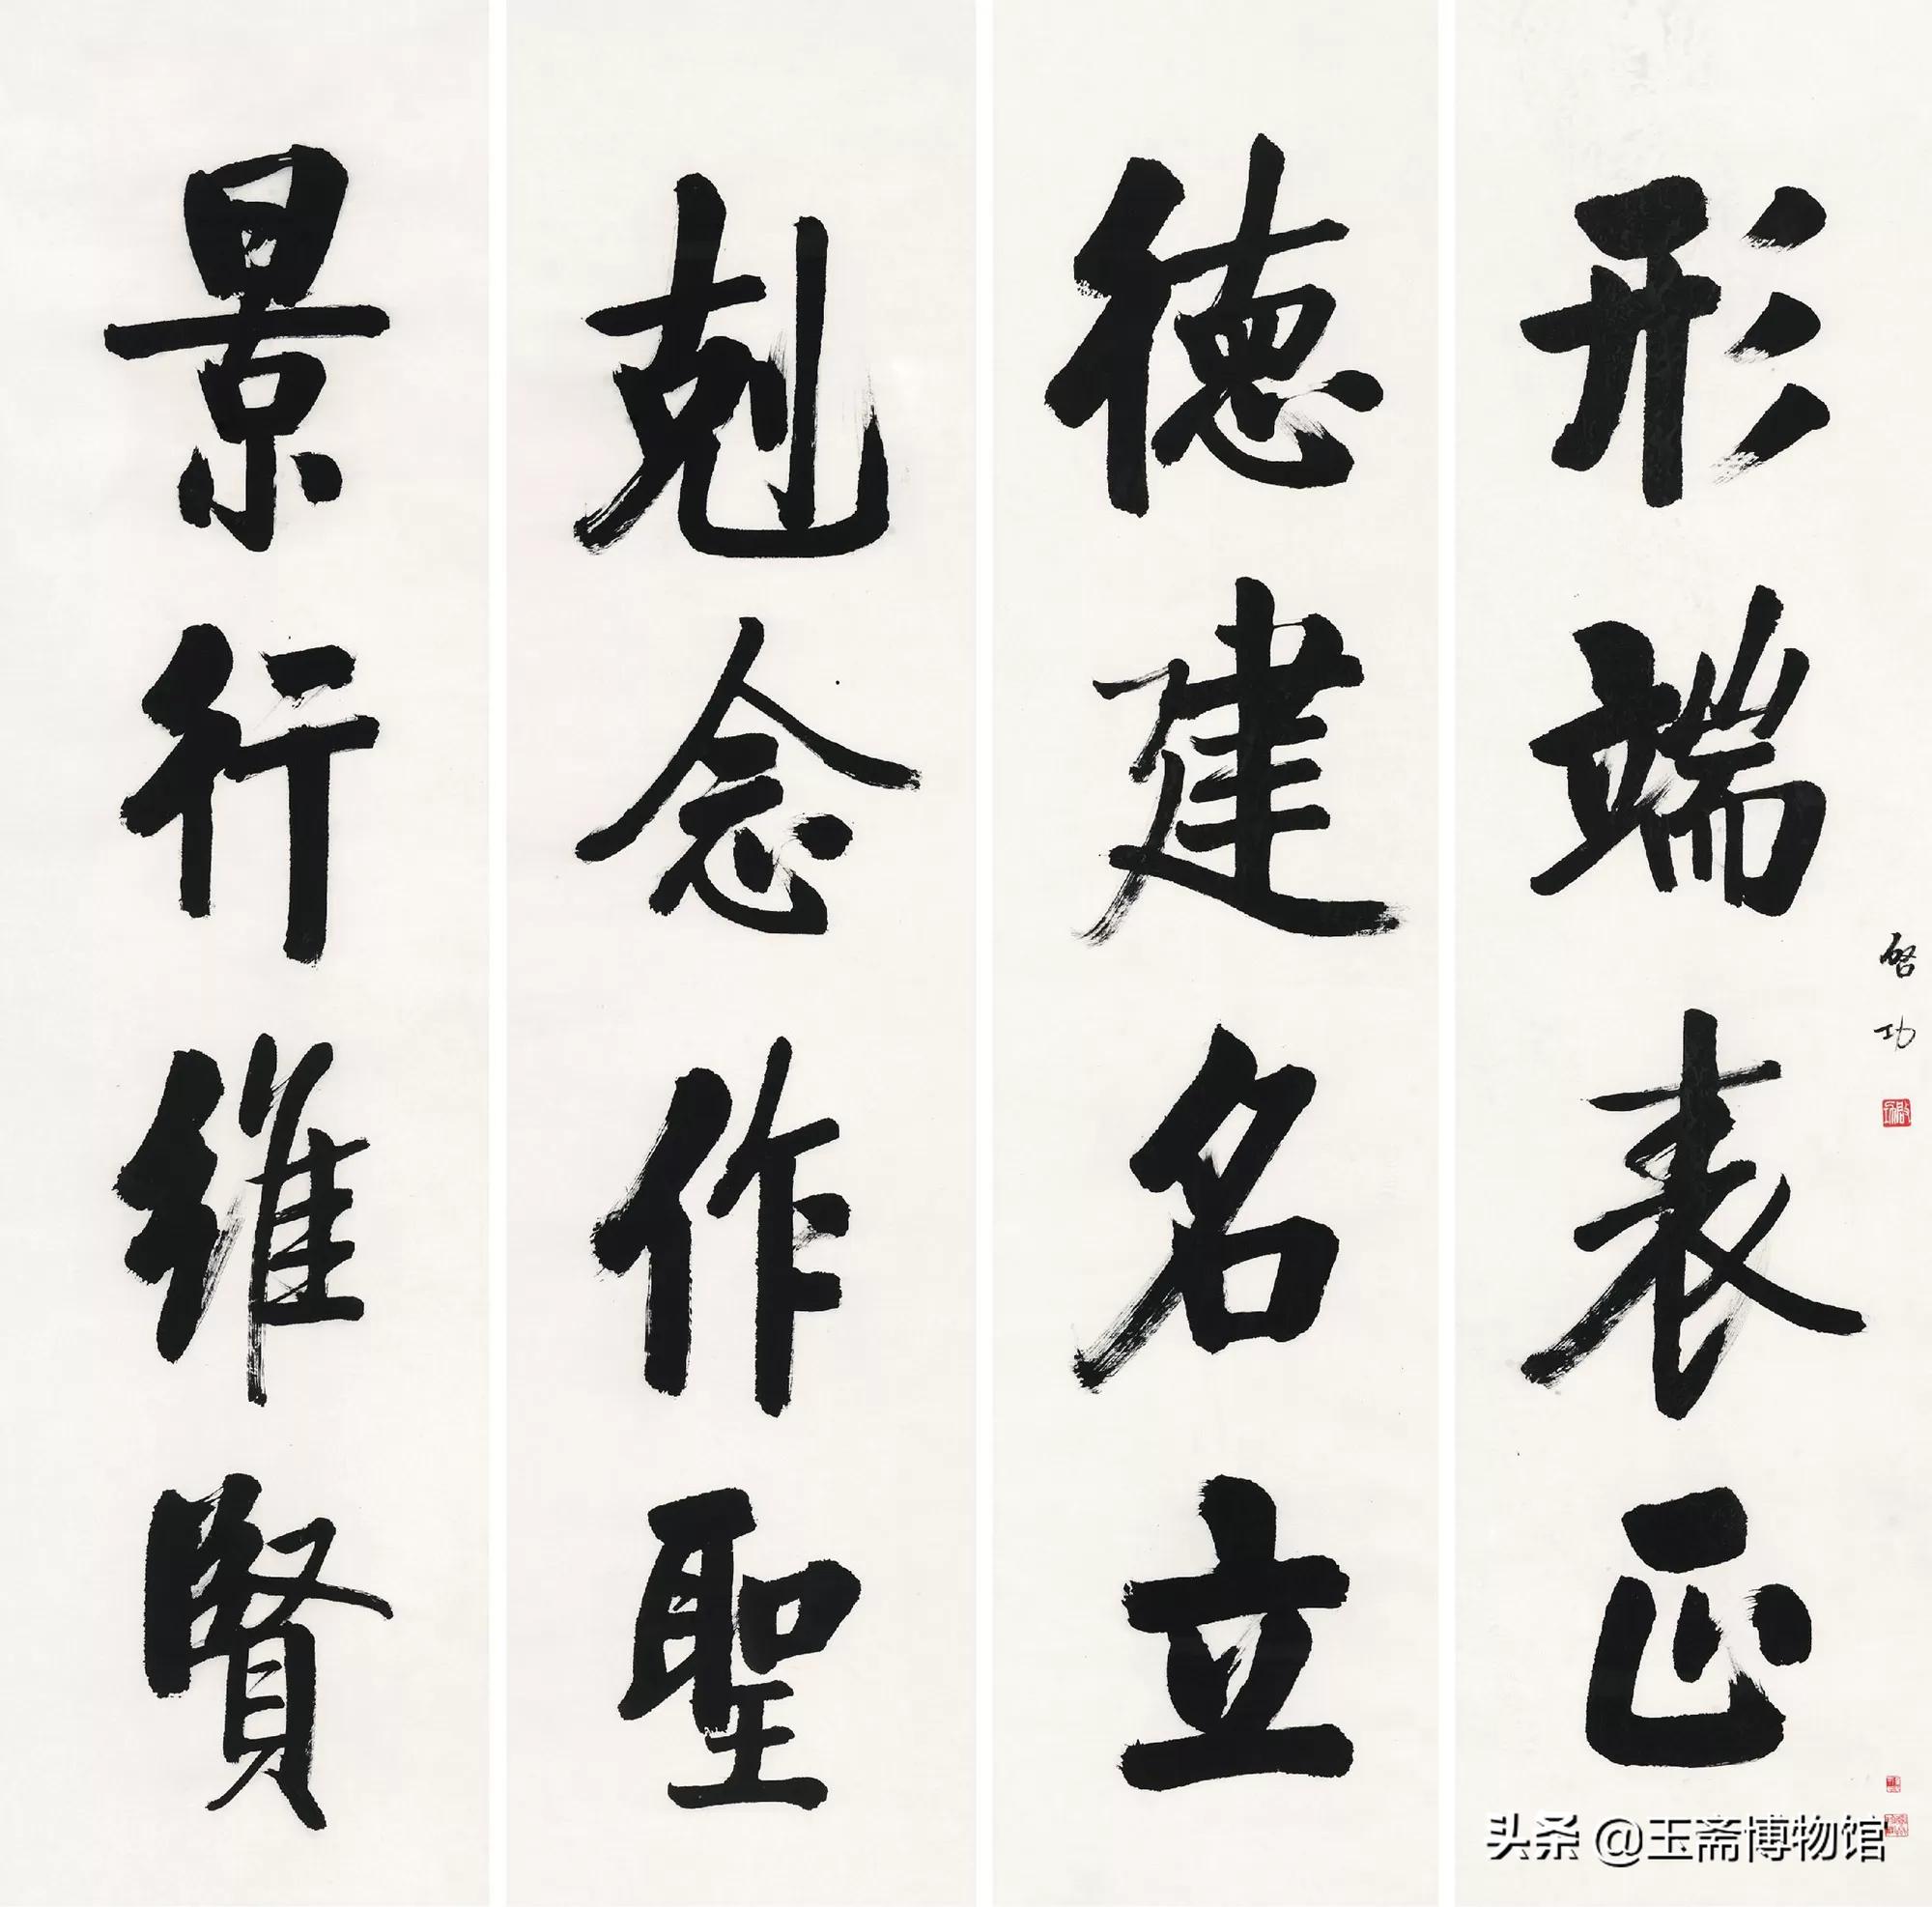 景行維賢
剋念作聖
德建名立
形端表正
啓功
头条 @玉斋博物馆